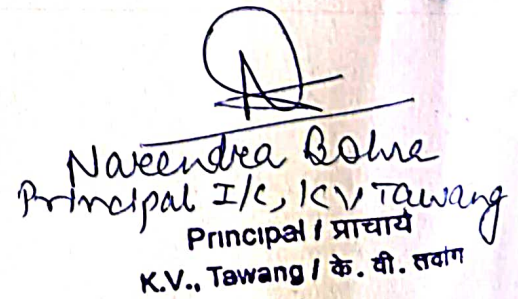 Narendra Bohra
Principal I/C, KV Tawang
Principal / प्राचार्य
K.V., Tawang / के. वी. तवांग